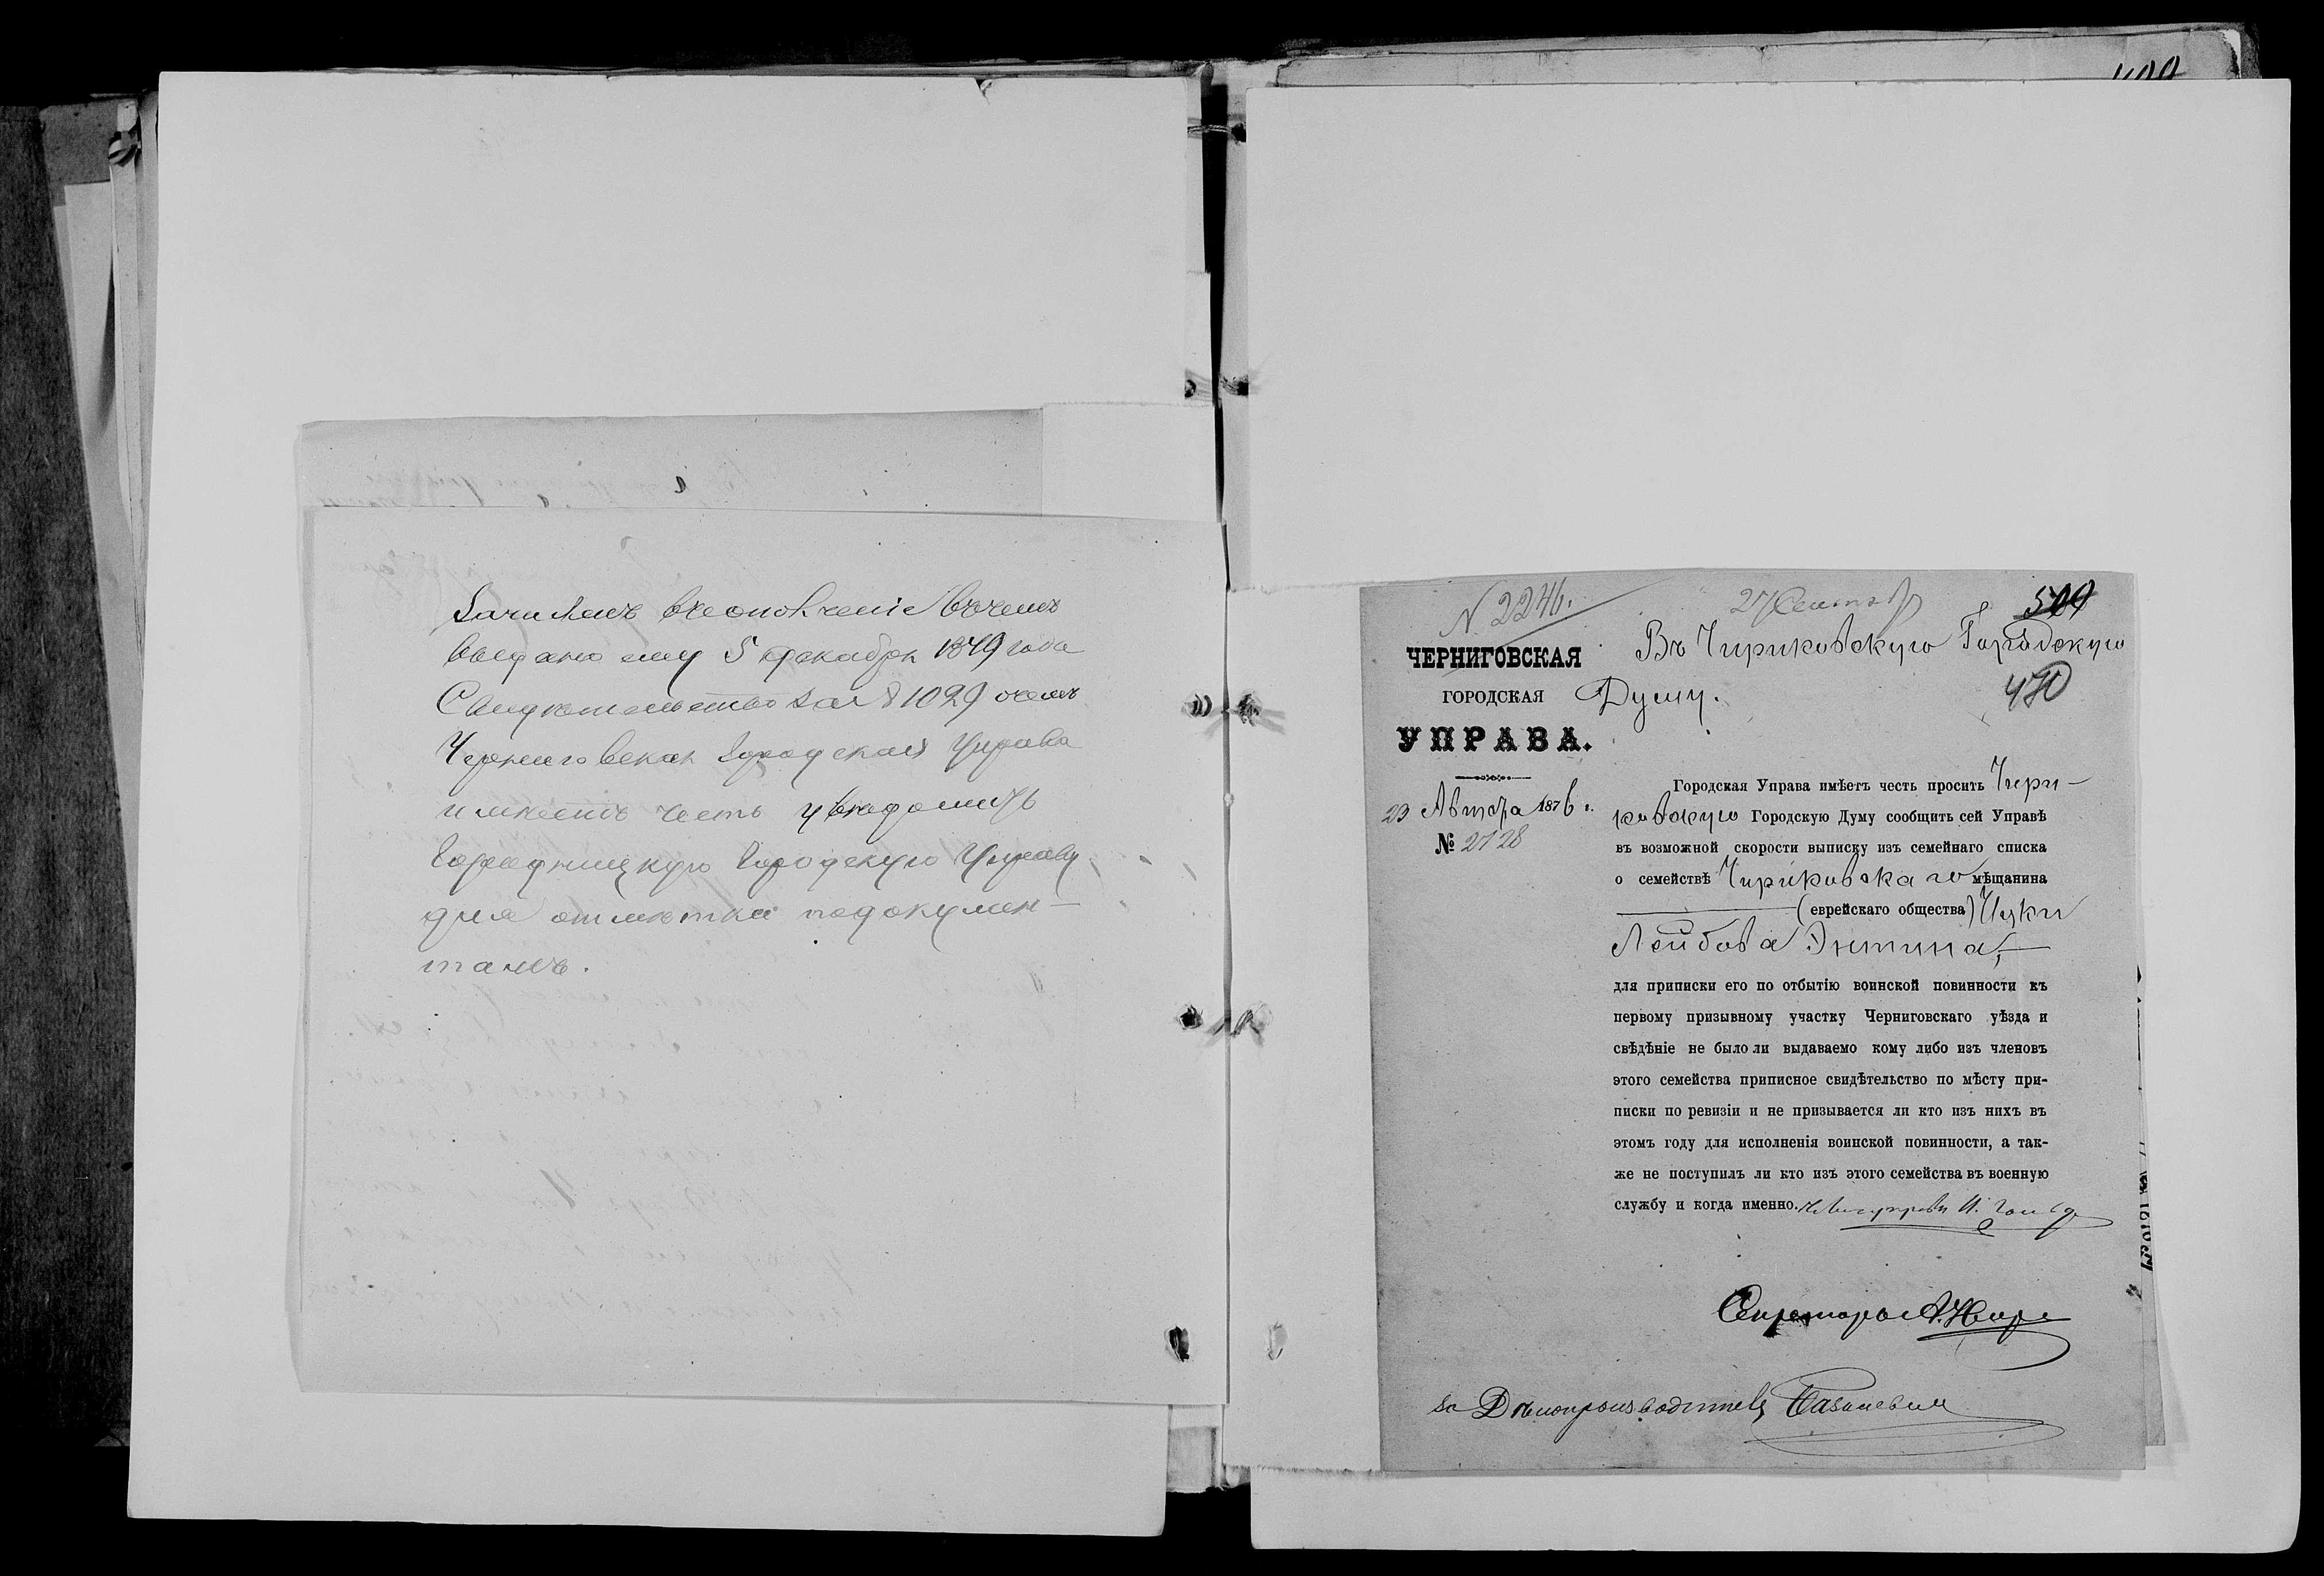 Зачисленъ въ ополченіе въ чемъ
выдано ему 5 декабря 1879 года
Свидѣтельство за № 1029 о чемъ
Черниговская Городская Управа
имѣетъ честь увѣдомить
Городницкую Городскую Управу
для отмѣтки по докумен-
тамъ.
400
N 2246.
27 Сентяб
509
ЧЕРНИГОВСКАЯ
ГОРОДСКАЯ
УПРАВА.
23 Августа 1876 г.
№ 2728
Въ Чириковскую Городскую
Думу.
470
Городская Управа имѣетъ честь просить Чири-
ковскую Городскую Думу сообщить сей Управѣ
въ возможной скорости выписку изъ семейнаго списка
о семействѣ Чириковскаго мѣщанина
(еврейскаго общества) Ицки
Лейбова Энтина,
для приписки его по отбытію воинской повинности къ
первому призывному участку Черниговскаго уѣзда и
свѣдѣніе не было ли выдаваемо кому либо изъ членовъ
этого семейства приписное свидѣтельство по мѣсту при-
писки по ревизіи и не призывается ли кто изъ нихъ въ
этомъ году для исполненія воинской повинности, а так-
же не поступилъ ли кто изъ этого семейства въ военную
службу и когда именно.
Секретарь
за Дѣлопроизводителя